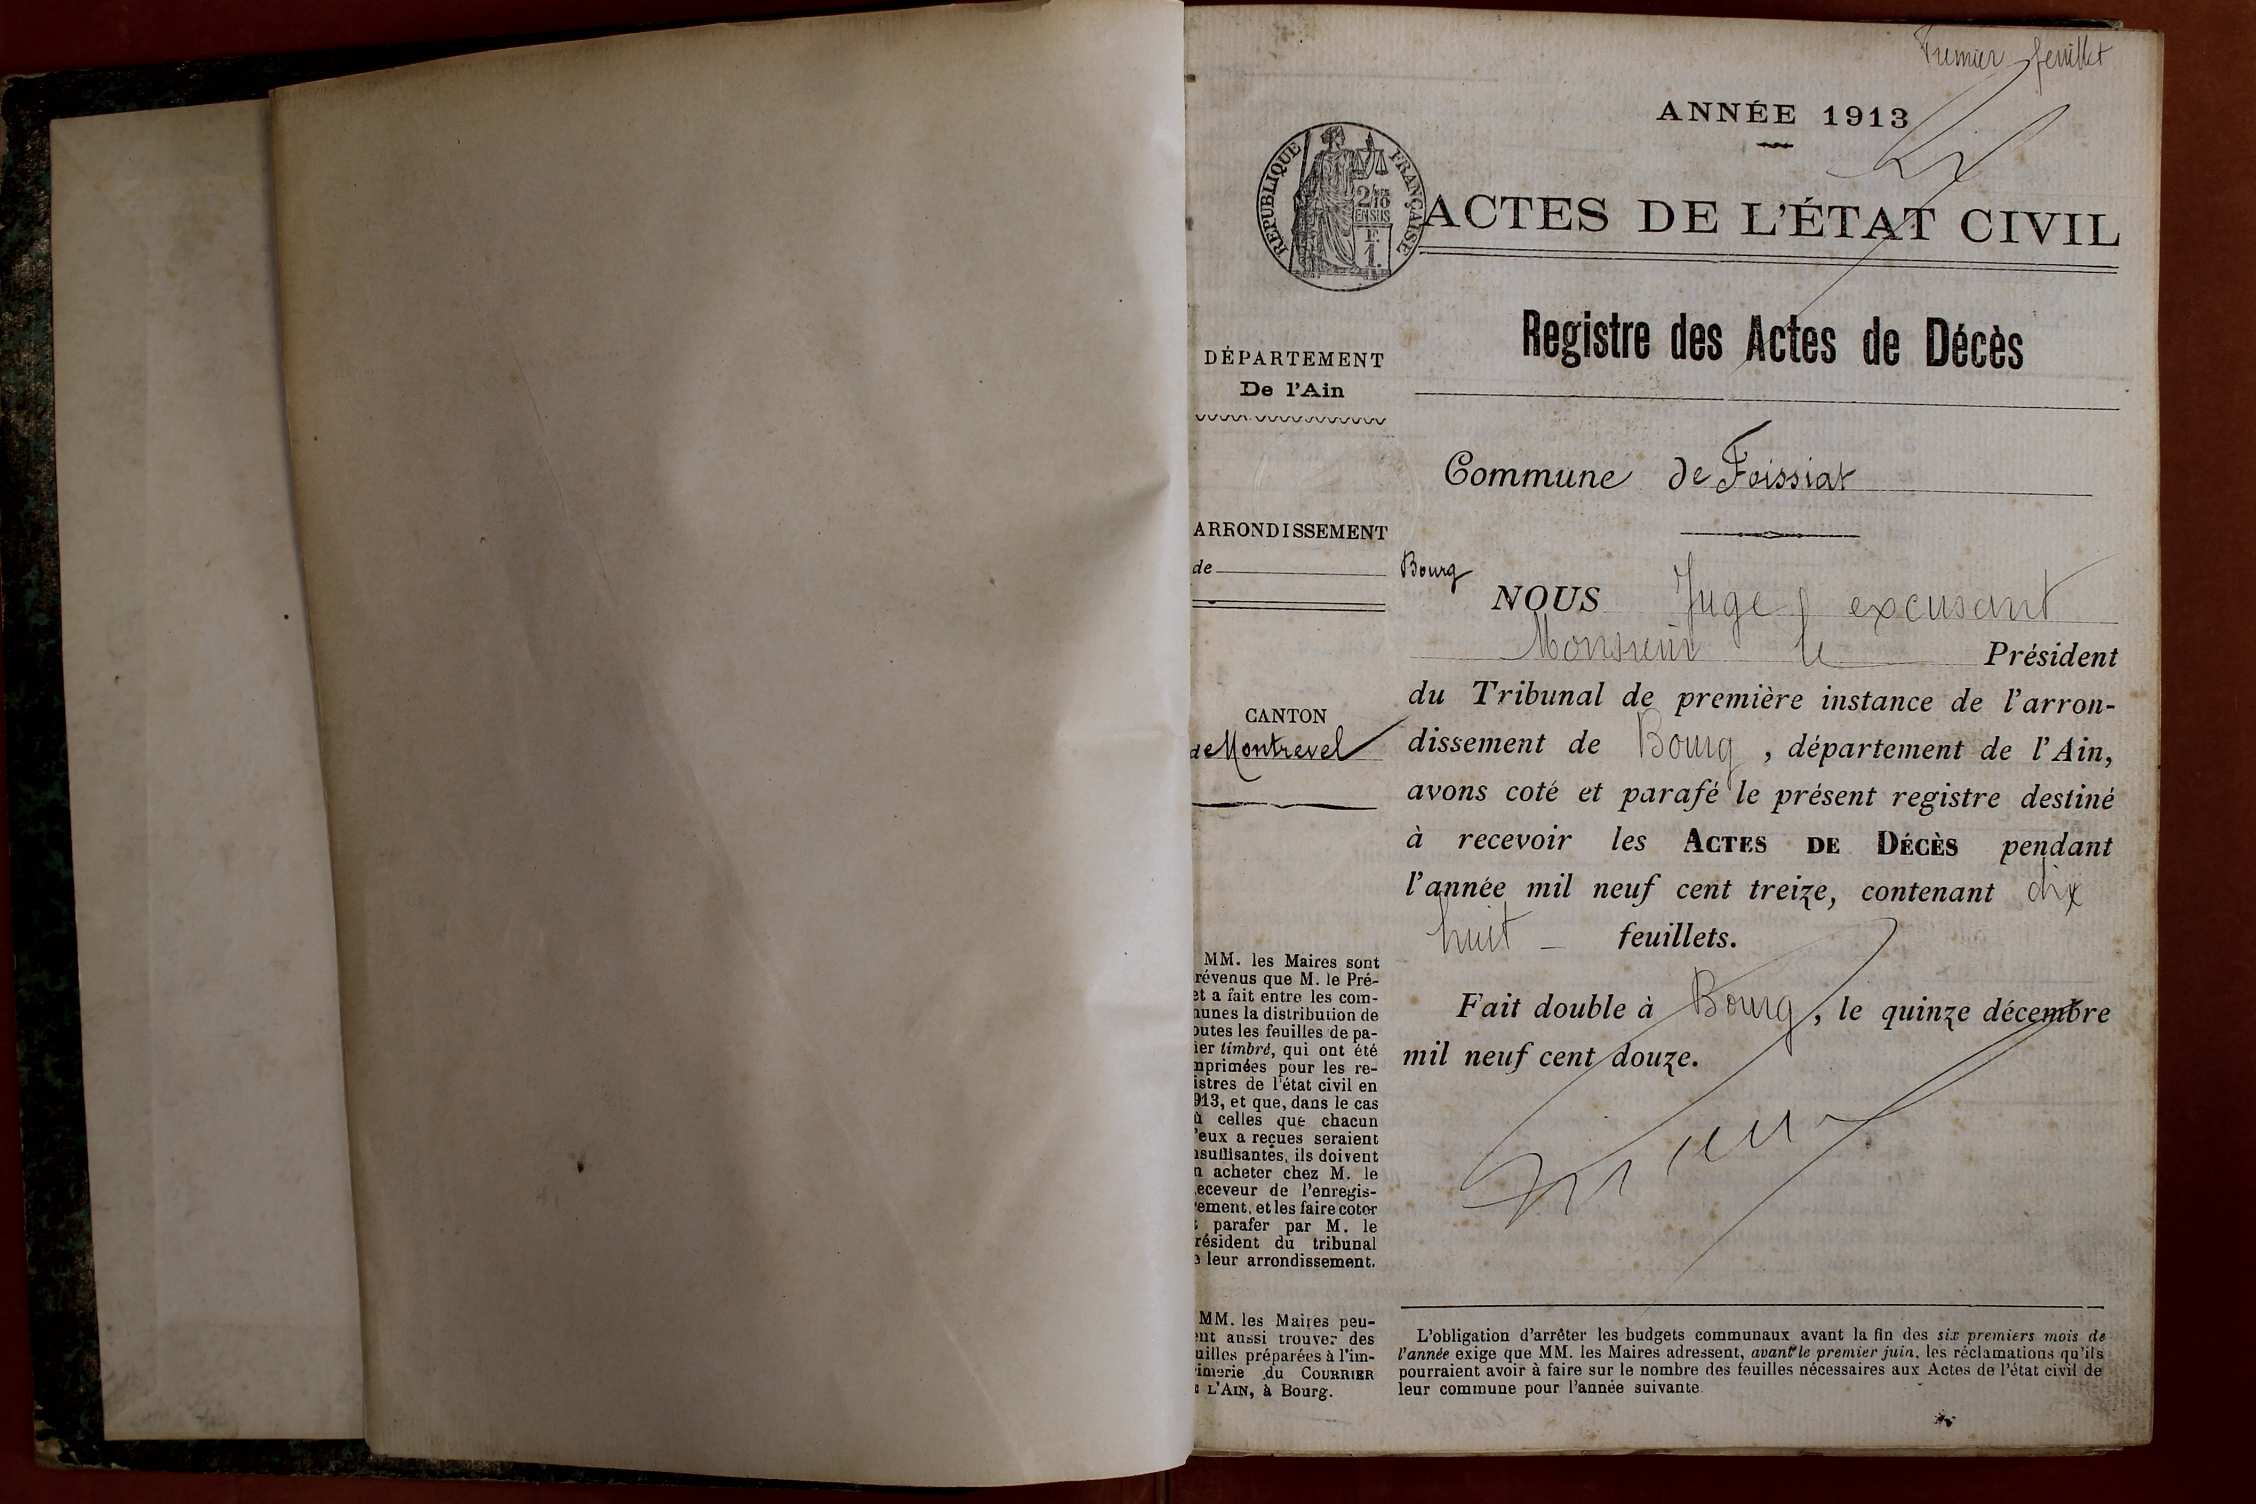 Premier feuillet
ANNÉE 1913
RÉPUBLIQUE FRANÇAISE
2/10
EN SUS
F
1.
ACTES DE L'ÉTAT CIVIL
Registre des Actes de Décès
DÉPARTEMENT
De l'Ain
Commune de Foissiat
ARRONDISSEMENT
de Bourg
CANTON
de Montrevel
NOUS Juge excusant
Monsieur le Président
du Tribunal de première instance de l'arron-
dissement de Bourg, département de l'Ain,
avons coté et parafé le présent registre destiné
à recevoir les ACTES DE DÉCÈS pendant
l'année mil neuf cent treize, contenant dix
huit - feuillets.
Fait double à Bourg, le quinze décembre
mil neuf cent douze.
MM. les Maires sont
révenus que M. le Pré-
et a fait entre les com-
unes la distribution de
outes les feuilles de pa-
ier timbré, qui ont été
mprimées pour les re-
istres de l'état civil en
913, et que, dans le cas
ù celles que chacun
'eux a reçues seraient
nsuffisantes, ils doivent
n acheter chez M. le
eceveur de l'enregis-
rement, et les faire coter
t parafer par M. le
résident du tribunal
e leur arrondissement.
MM. les Maires peu-
ent aussi trouver des
uilles préparées à l'im-
rimerie du COURRIER
E L'AIN, à Bourg.
L'obligation d'arrêter les budgets communaux avant la fin des six premiers mois de
l'année exige que MM. les Maires adressent, avant le premier juin, les réclamations qu'ils
pourraient avoir à faire sur le nombre des feuilles nécessaires aux Actes de l'état civil de
leur commune pour l'année suivante.